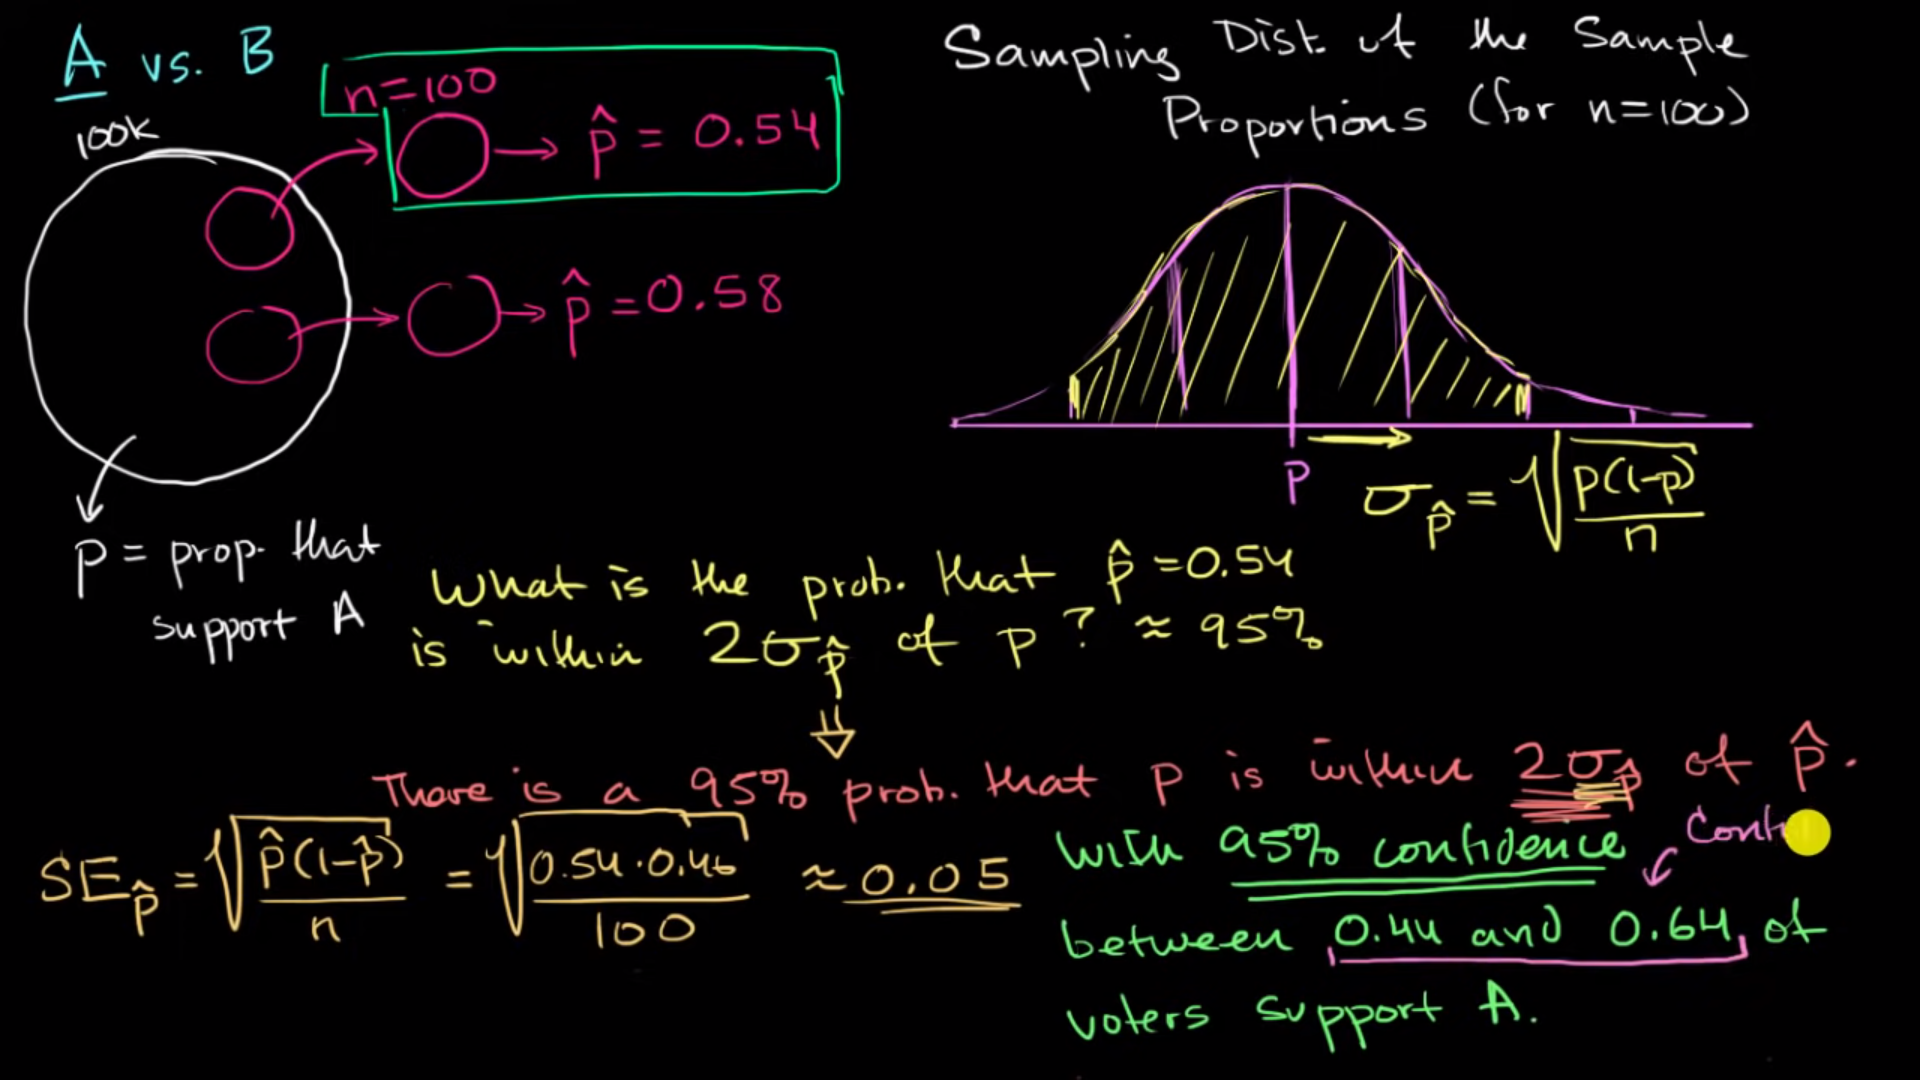 A vs. B
100K
n=100
p̂ = 0.54
p̂ = 0.58
p = prop. that
support A
Sampling Dist. of the Sample
Proportions (for n=100)
P
σp̂ = √(p(1-p)/n)
What is the prob. that p̂ = 0.54
is within 2σp̂ of p? ≈ 95%
There is a 95% prob. that p is within 2σp̂ of p̂.
SEp̂ = √(p̂(1-p̂)/n) = √(0.54·0.46/100) ≈ 0.05
With 95% confidence
between 0.44 and 0.64 of
voters support A.